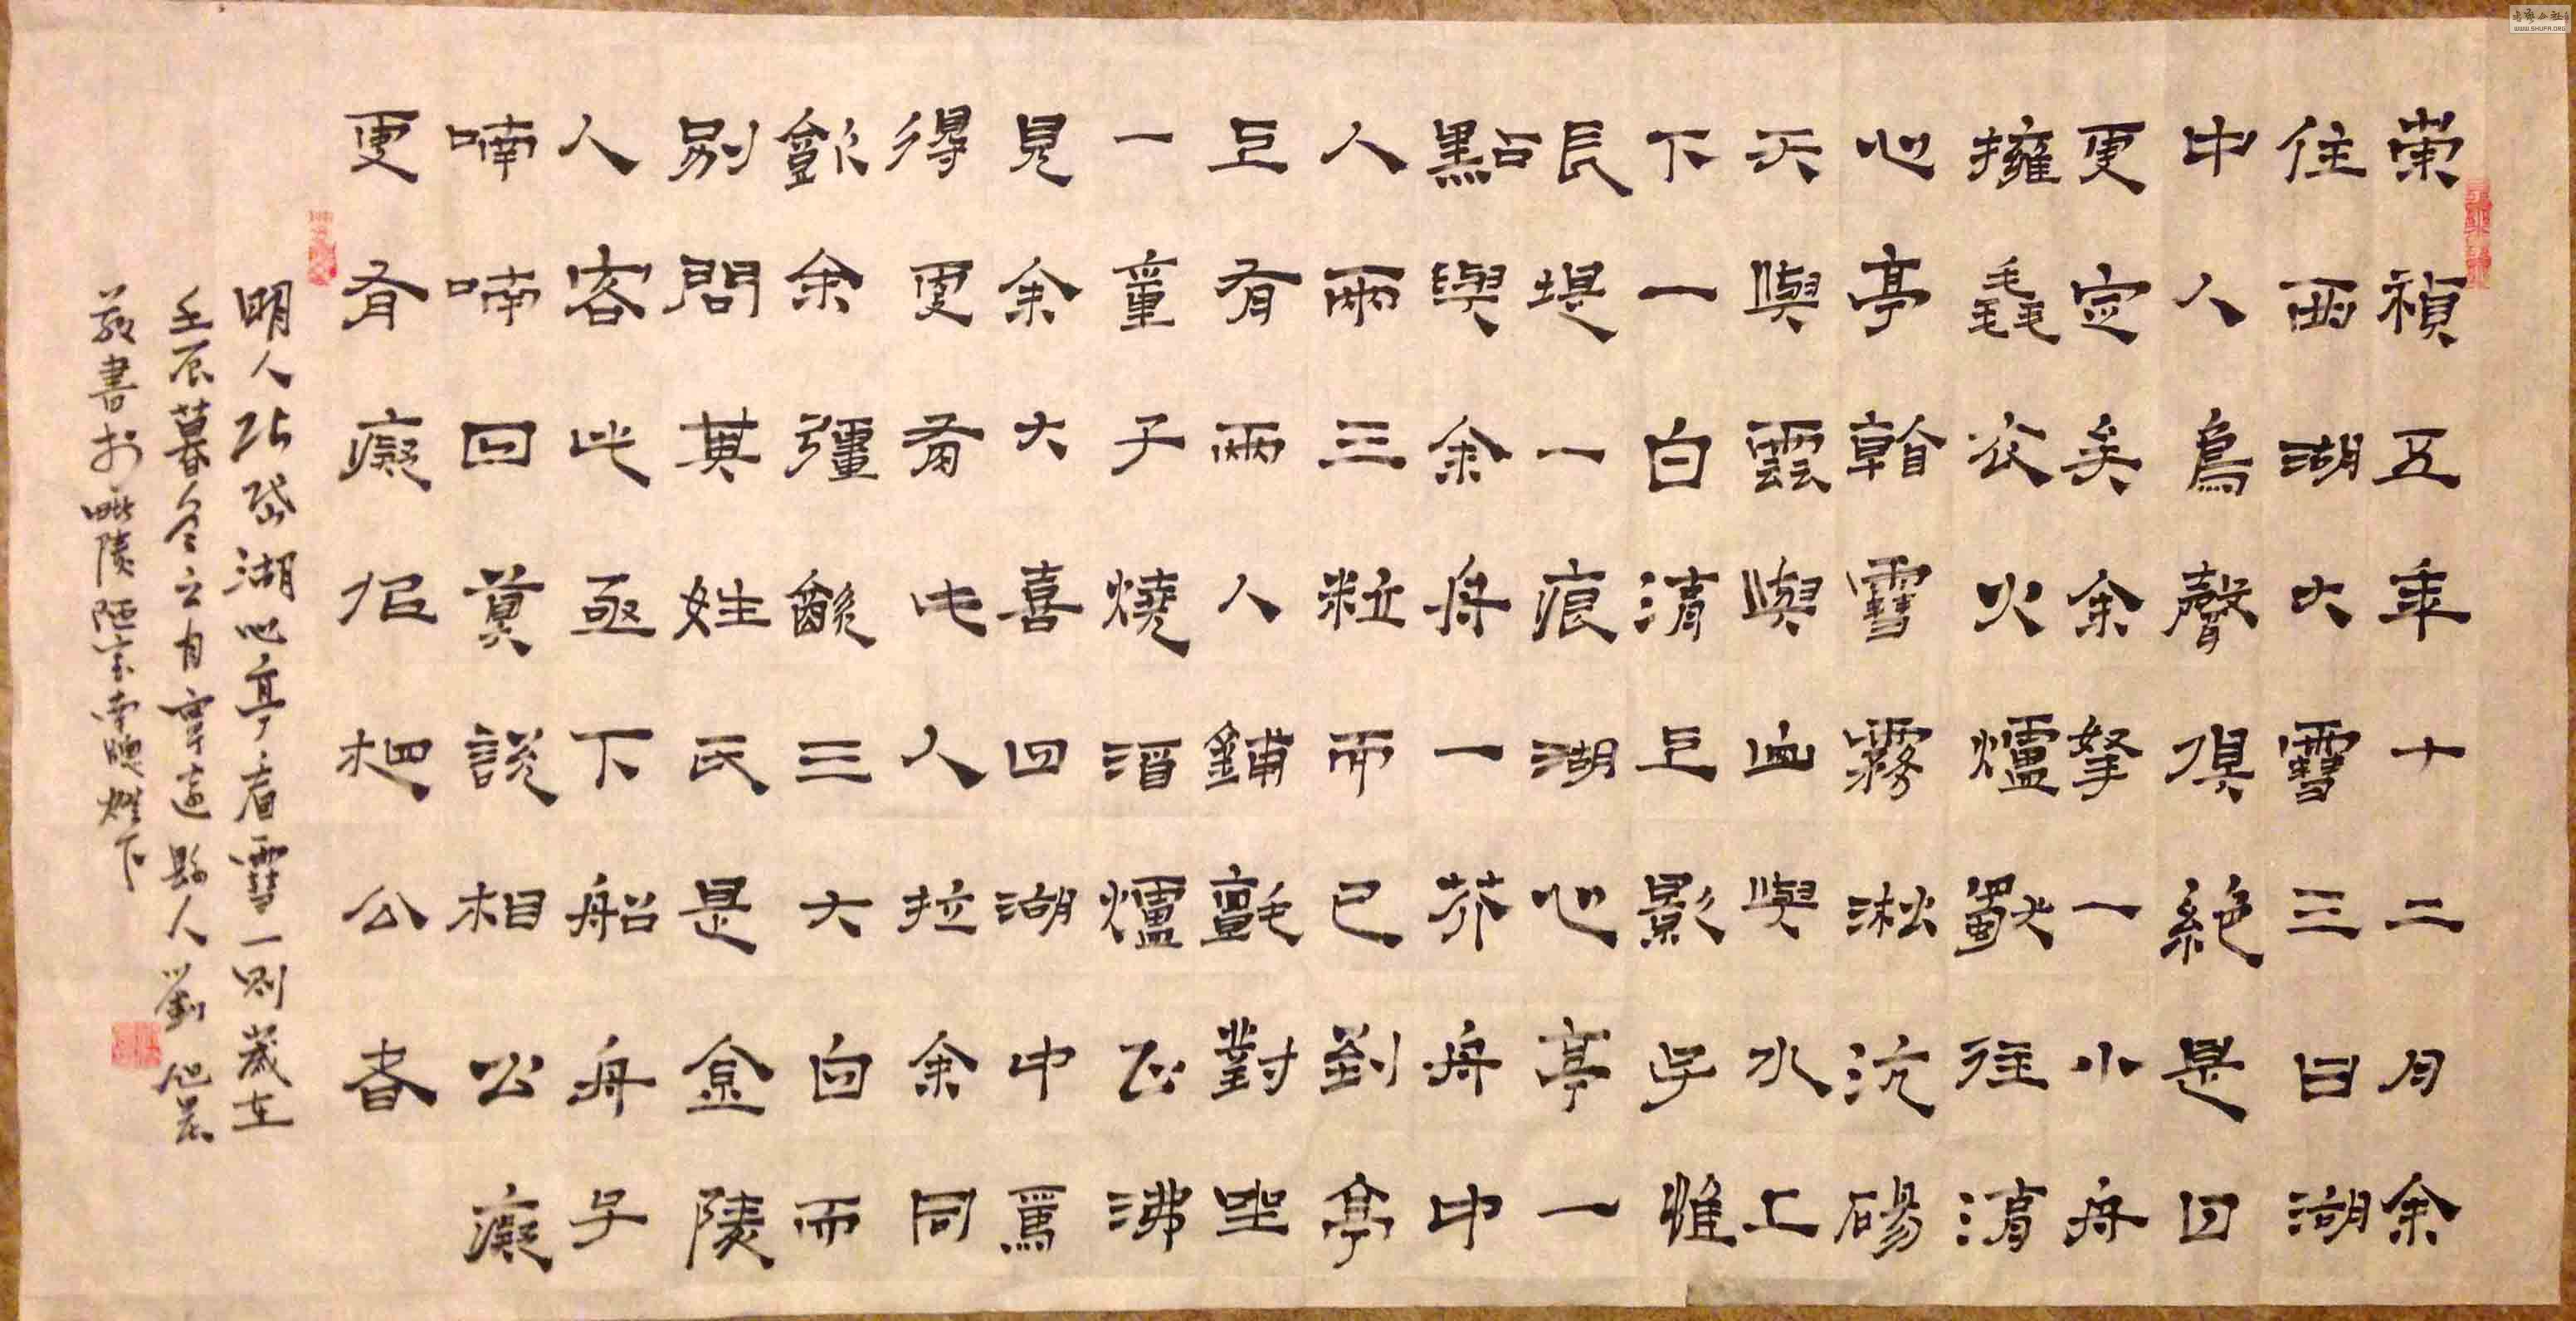 崇禎五年十二月余
住西湖大雪三日湖
中人鳥聲俱絕是日
更定矣余拏一小舟
擁毳衣火爐獨往湖
心亭看雪霧淞沆碭
天與雲與山與水上
下一白湖上影子惟
長堤一痕湖心亭一
點與余舟一芥舟中
人兩三粒而已到亭
上有兩人鋪氈對坐
一童子燒酒爐正沸
見余大喜曰湖中焉
得更有此人拉余同
飲余彊飲三大白而
別問其姓氏是金陵
人客此亟下船舟子
喃喃曰莫說相公癡
更有癡似相公者
明人張岱湖心亭看雪一則歲在
壬辰暮冬之月寧遠縣人劉
敬書於毗陵陋室南窗燈下
WWW.SHUFA.ORG